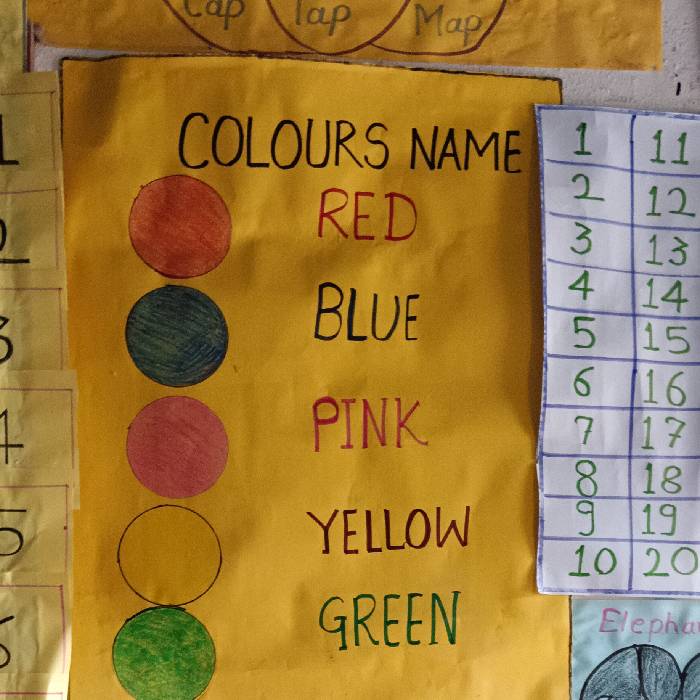 Cap Tap Map
COLOURS NAME
RED
BLUE
PINK
YELLOW
GREEN
1 11
2 12
3 13
4 14
5 15
6 16
7 17
8 18
9 19
10 20
1
2
3
4
5
6